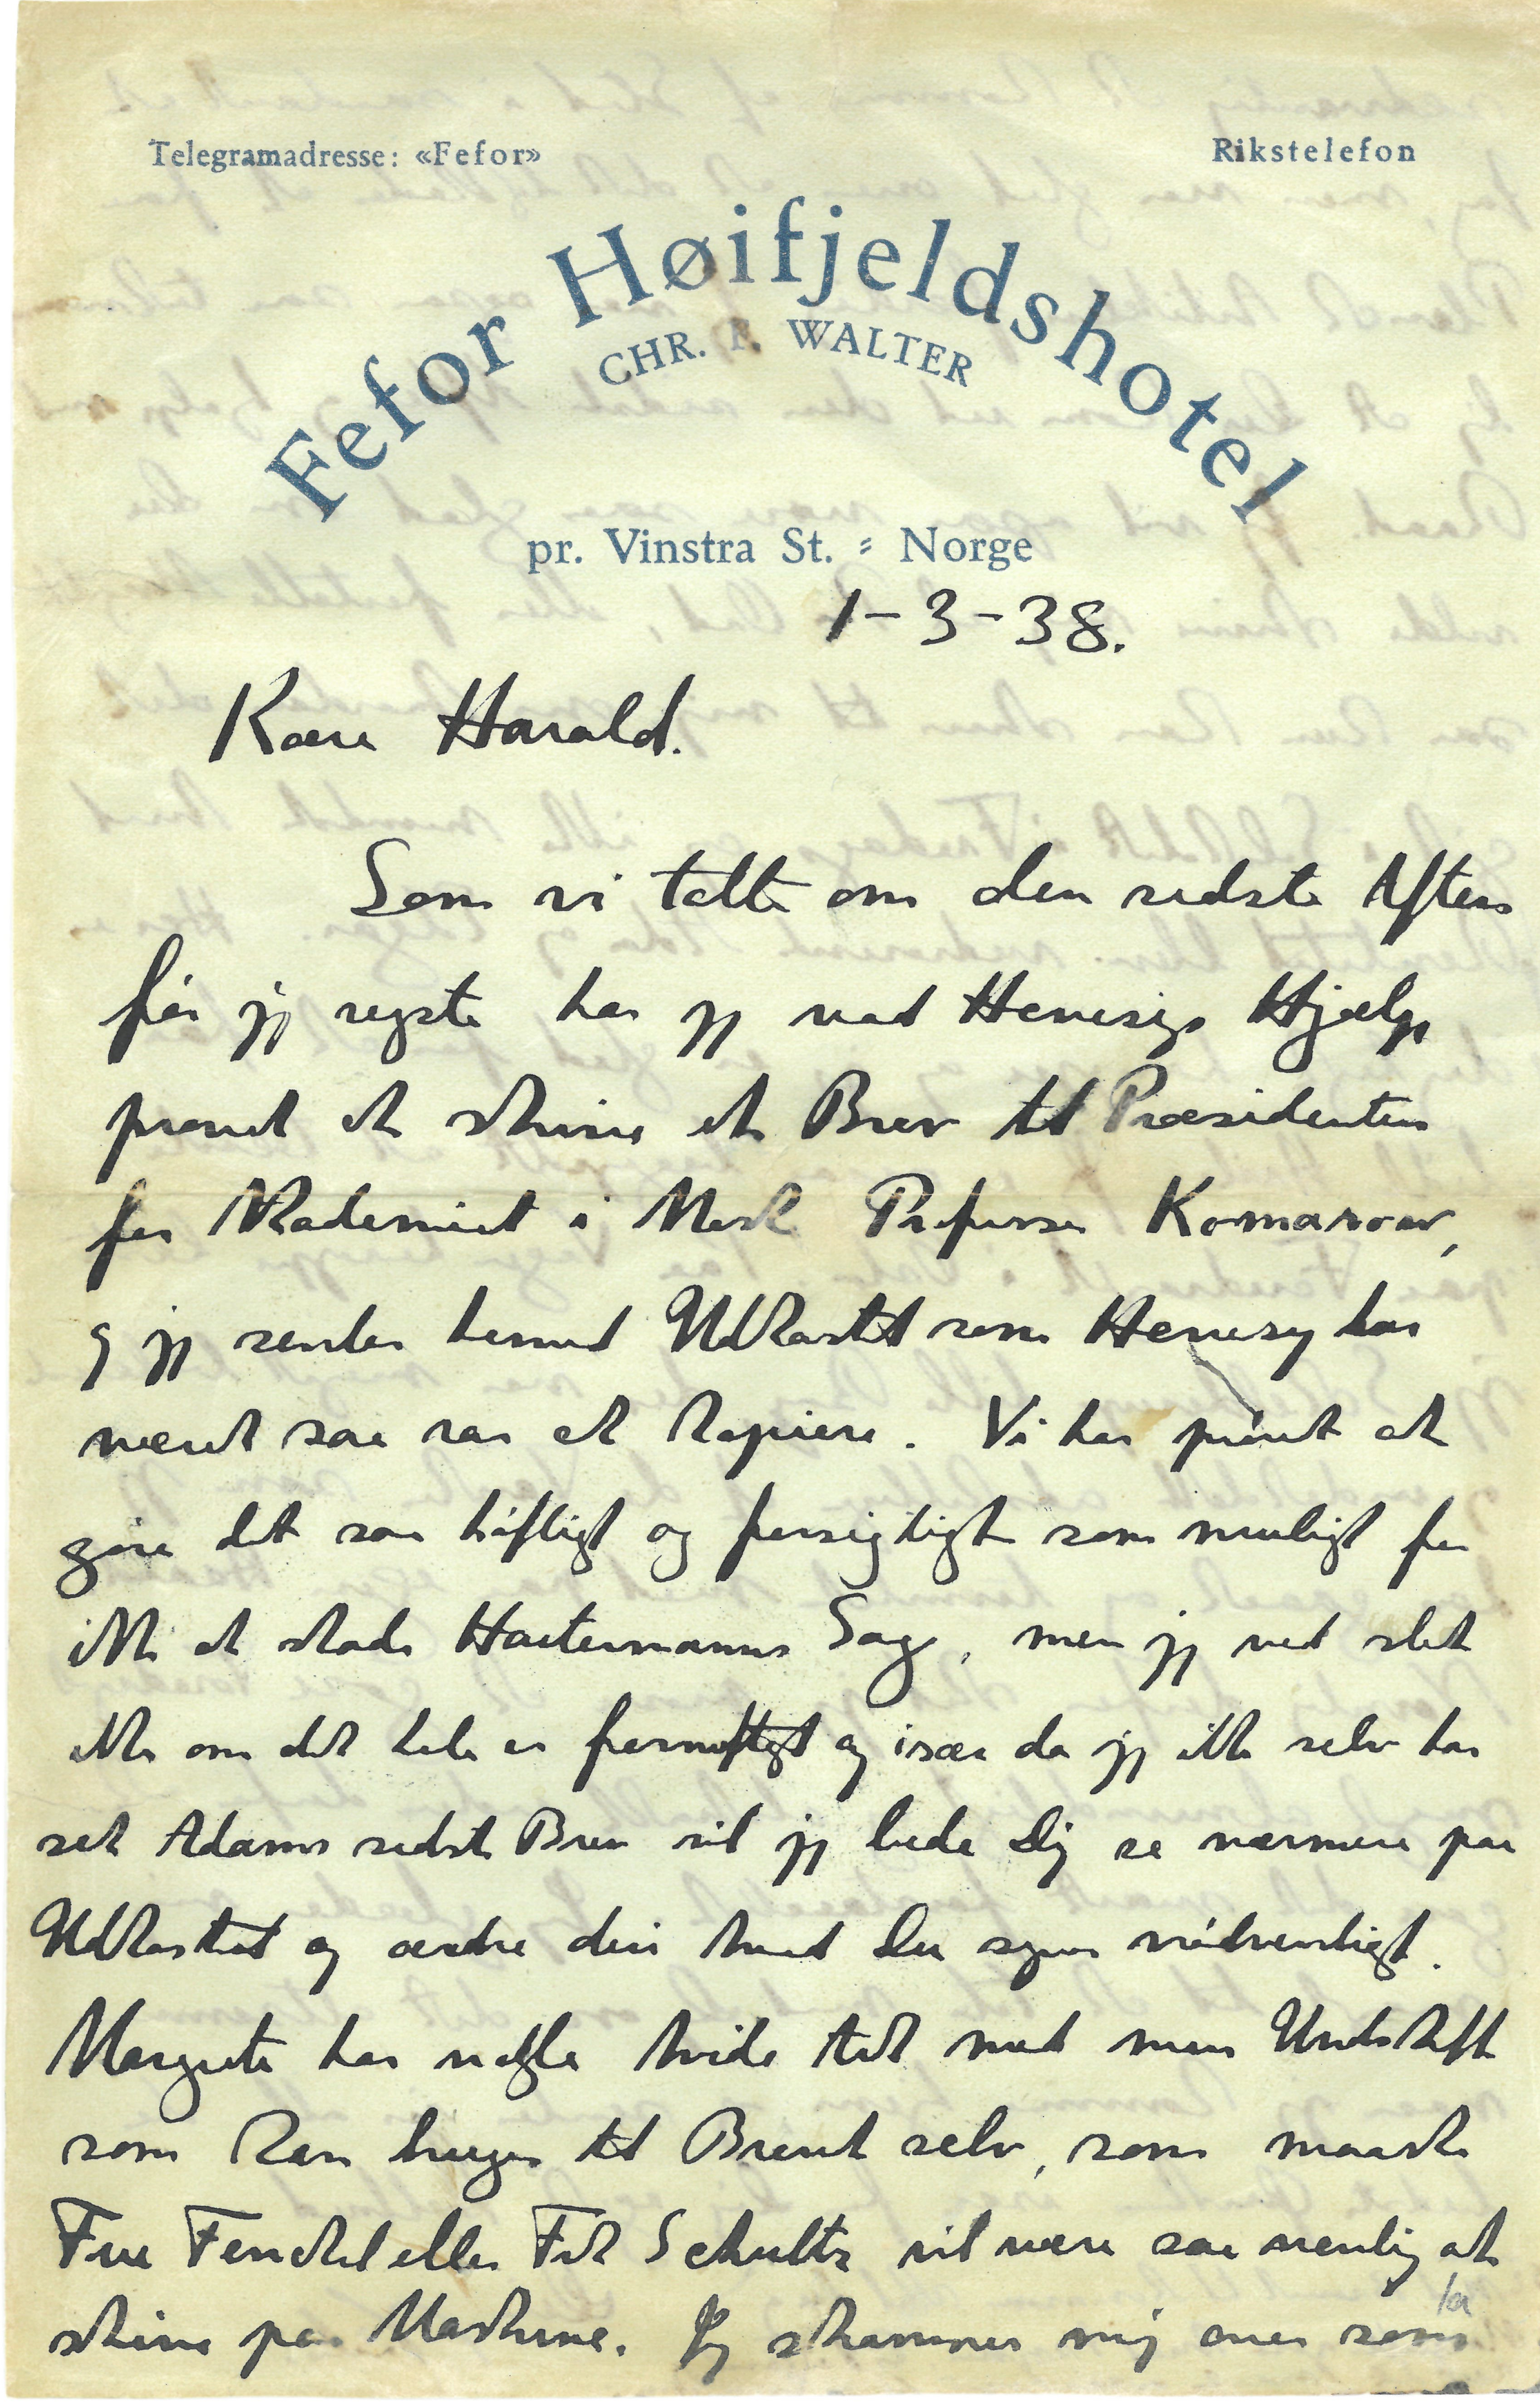 Telegramadresse: «Fefor»
Rikstelefon
Fefor Høifjeldshotel
CHR. F. WALTER
pr. Vinstra St. - Norge
1-3-38.
Kære Harald.
Som vi talte om den sidste Aften
før jeg rejste har jeg med Hevesys Hjælp
prøvet at skrive et Brev til Præsidenten
for Akademiet i Professor Komarow,
og jeg sender hermed Udkastet som Hevesy har
været saa rar at kopiere. Vi har prøvet at
gøre det saa høfligt og forsigtigt som muligt for
ikke at skade Houtermanns Sag, men jeg ved slet
ikke om det hele er fornuftigt og især da jeg ikke selv har
set Adams sidste Brev vil jeg bede Dig se nærmere paa
Udkastet og ændre deri hvad Du synes nødvendigt.
Margrete har nogle hvide Ark med min Underskrift
som kan bruges til Brevet selv, som maaske
Fru Fenchel eller Frk Schultz vil være saa venlig at
skrive paa Maskine. Jeg skammer mig over saa